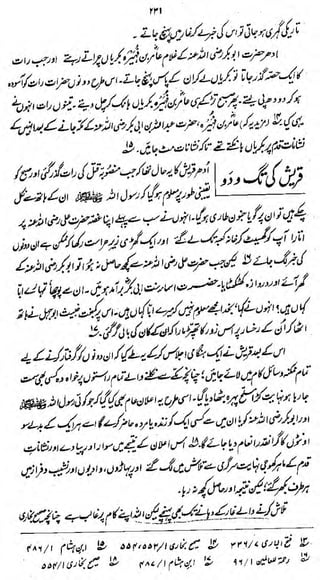 ۲۳۱
تاریکی گہری ہوجاتی تو اس کی خبر لے کر غار میں پہنچ جاتے۔
ادھر حضرت ابوبکر رضی اللہ عنہ کے غلام عامر بن فُہَیْرَہ بکریاں چراتے رہتے اور جب رات
کا ایک حصہ گذر جاتا تو بکریاں لے کر ان کے پاس پہنچ جاتے۔ اس طرح دونوں حضرات رات کو آسودہ
ہو کر دودھ پی لیتے۔ پھر صبح تڑکے ہی عامر بن فُہَیْرہ بکریاں ہانک کر چل دیتے۔ تینوں رات انہوں نے
یہی کیا۔ (مزید یہ کہ) عامر بن فہیرہ، حضرت عبداللہ بن ابی بکر رضی اللہ عنہ کے مکہ جانے کے بعد انہیں کے
نشانات قدم پر بکریاں ہانکتے تھے تاکہ نشانات مٹ جائیں۔
قریش کی تگ و دَو
اُدھر قریش کا یہ حال تھا کہ جب منصوبۂ قتل کی رات گذر گئی اور صبح کو
یقینی طور پر معلوم ہو گیا کہ رسول اللہ ﷺ ان کے ہاتھ سے نکل
چکے ہیں تو ان پر گویا جنون طاری ہو گیا۔ انہوں نے سب سے پہلے اپنا غصہ حضرت علی رضی اللہ عنہ پر
اتارا آپ کو گھسیٹ کر خانہ کعبہ تک لے گئے اور ایک گھڑی زیر حراست رکھا کہ ممکن ہے ان دونوں
کی خبر لگ جائے لیکن جب حضرت علی رضی اللہ عنہ سے کچھ حاصل نہ ہوا تو ابوبکر رضی اللہ عنہ کے
گھر آئے اور دروازہ کھٹکھٹایا۔ حضرت اسماء بنت ابی بکر برآمد ہوئیں۔ ان سے پوچھا تمہارے ابا
کہاں ہیں؟ انہوں نے کہا بخدا مجھے معلوم نہیں کہ میرے ابا کہاں ہیں۔ اس پر کمبخت خبیث ابوجہل نے ہاتھ
اٹھا کر ان کے رخسار پر اس زور کا تھپڑ مارا کہ ان کے کان کی بالی گر گئی۔
اس کے بعد قریش نے ایک ہنگامی اجلاس کر کے یہ طے کیا کہ ان دونوں کو گرفتار کرنے کے لیے
تمام ممکنہ وسائل کام میں لائے جائیں؛ چنانچہ مکے سے نکلنے والے تمام راستوں پر خواہ وہ کسی بھی سمت
جا رہا ہو نہایت کڑا مسلح پہرہ بٹھا دیا گیا۔ اسی طرح یہ اعلان عام بھی کیا گیا کہ جو کوئی رسول اللہ ﷺ
اور ابوبکر رضی اللہ عنہ کو یا ان میں سے کسی ایک کو زندہ یا مردہ حاضر کرے گا اسے ہر ایک کے بدلے سو
اونٹوں کا گرانقدر انعام دیا جائے گا۔ اس اعلان کے نتیجے میں سوار اور پیادے اور نشانات
قدم کے ماہر کھوجی نہایت سرگرمی سے تلاش میں لگ گئے اور پہاڑوں، وادیوں اور نشیب و فراز میں
ہر طرف بکھر گئے؛ لیکن نتیجہ اور حاصل کچھ نہ رہا۔
تلاش کرنے والے غار کے دہانے تک بھی پہنچے لیکن اللہ اپنے کام پر غالب ہے چنانچہ صحیح بخاری
فتح الباری ۳۳۶/۷ صحیح بخاری ۵۵۳/۱، ۵۵۴ ابن ہشام ۴۸۶/۱
رحمۃ للعالمین ۹۶/۱ ابن ہشام ۴۸۷/۱ صحیح بخاری ۵۵۴/۱